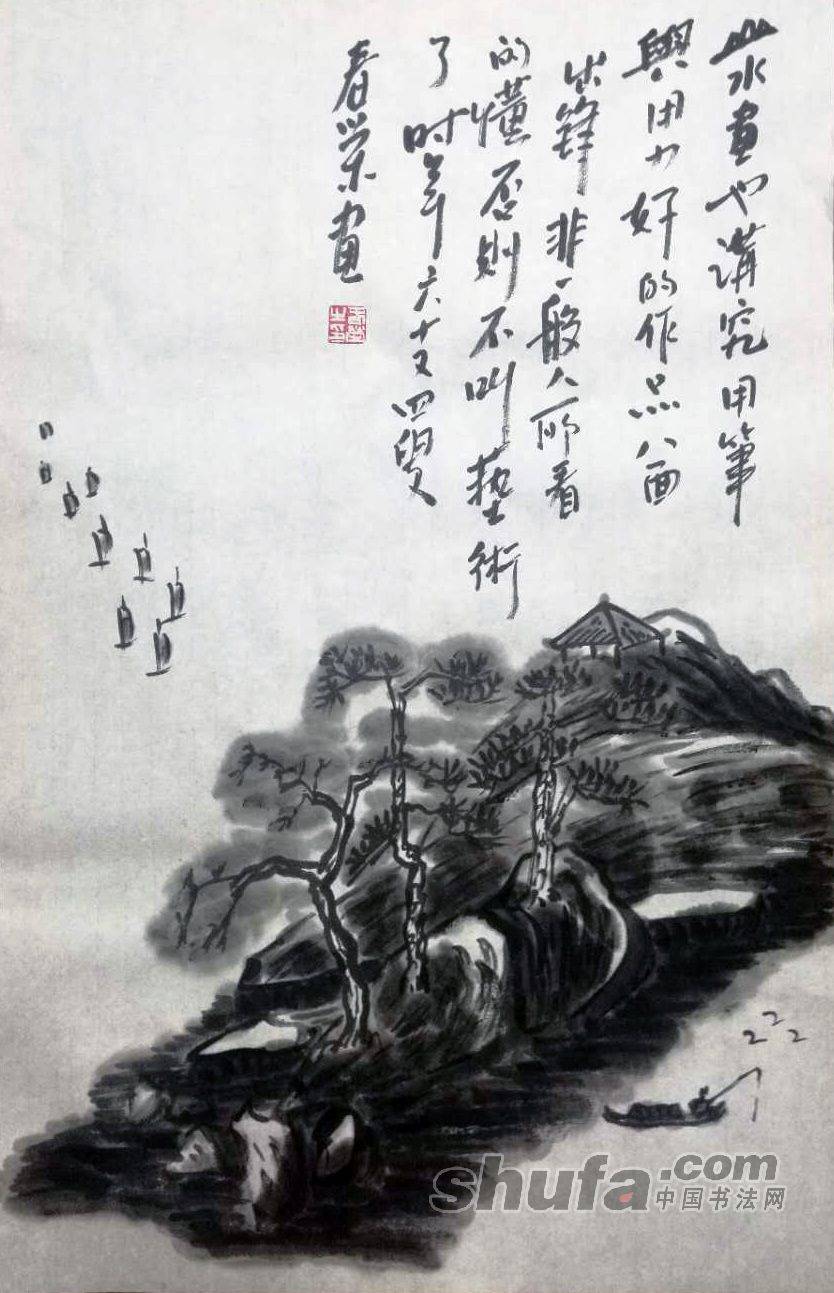 山水画也講究用筆
與用力好的作品八面
出鋒非一般人所看
的懂否则不叫藝術
了时年六十又四叟
春荣画
shufa.com
中国书法网